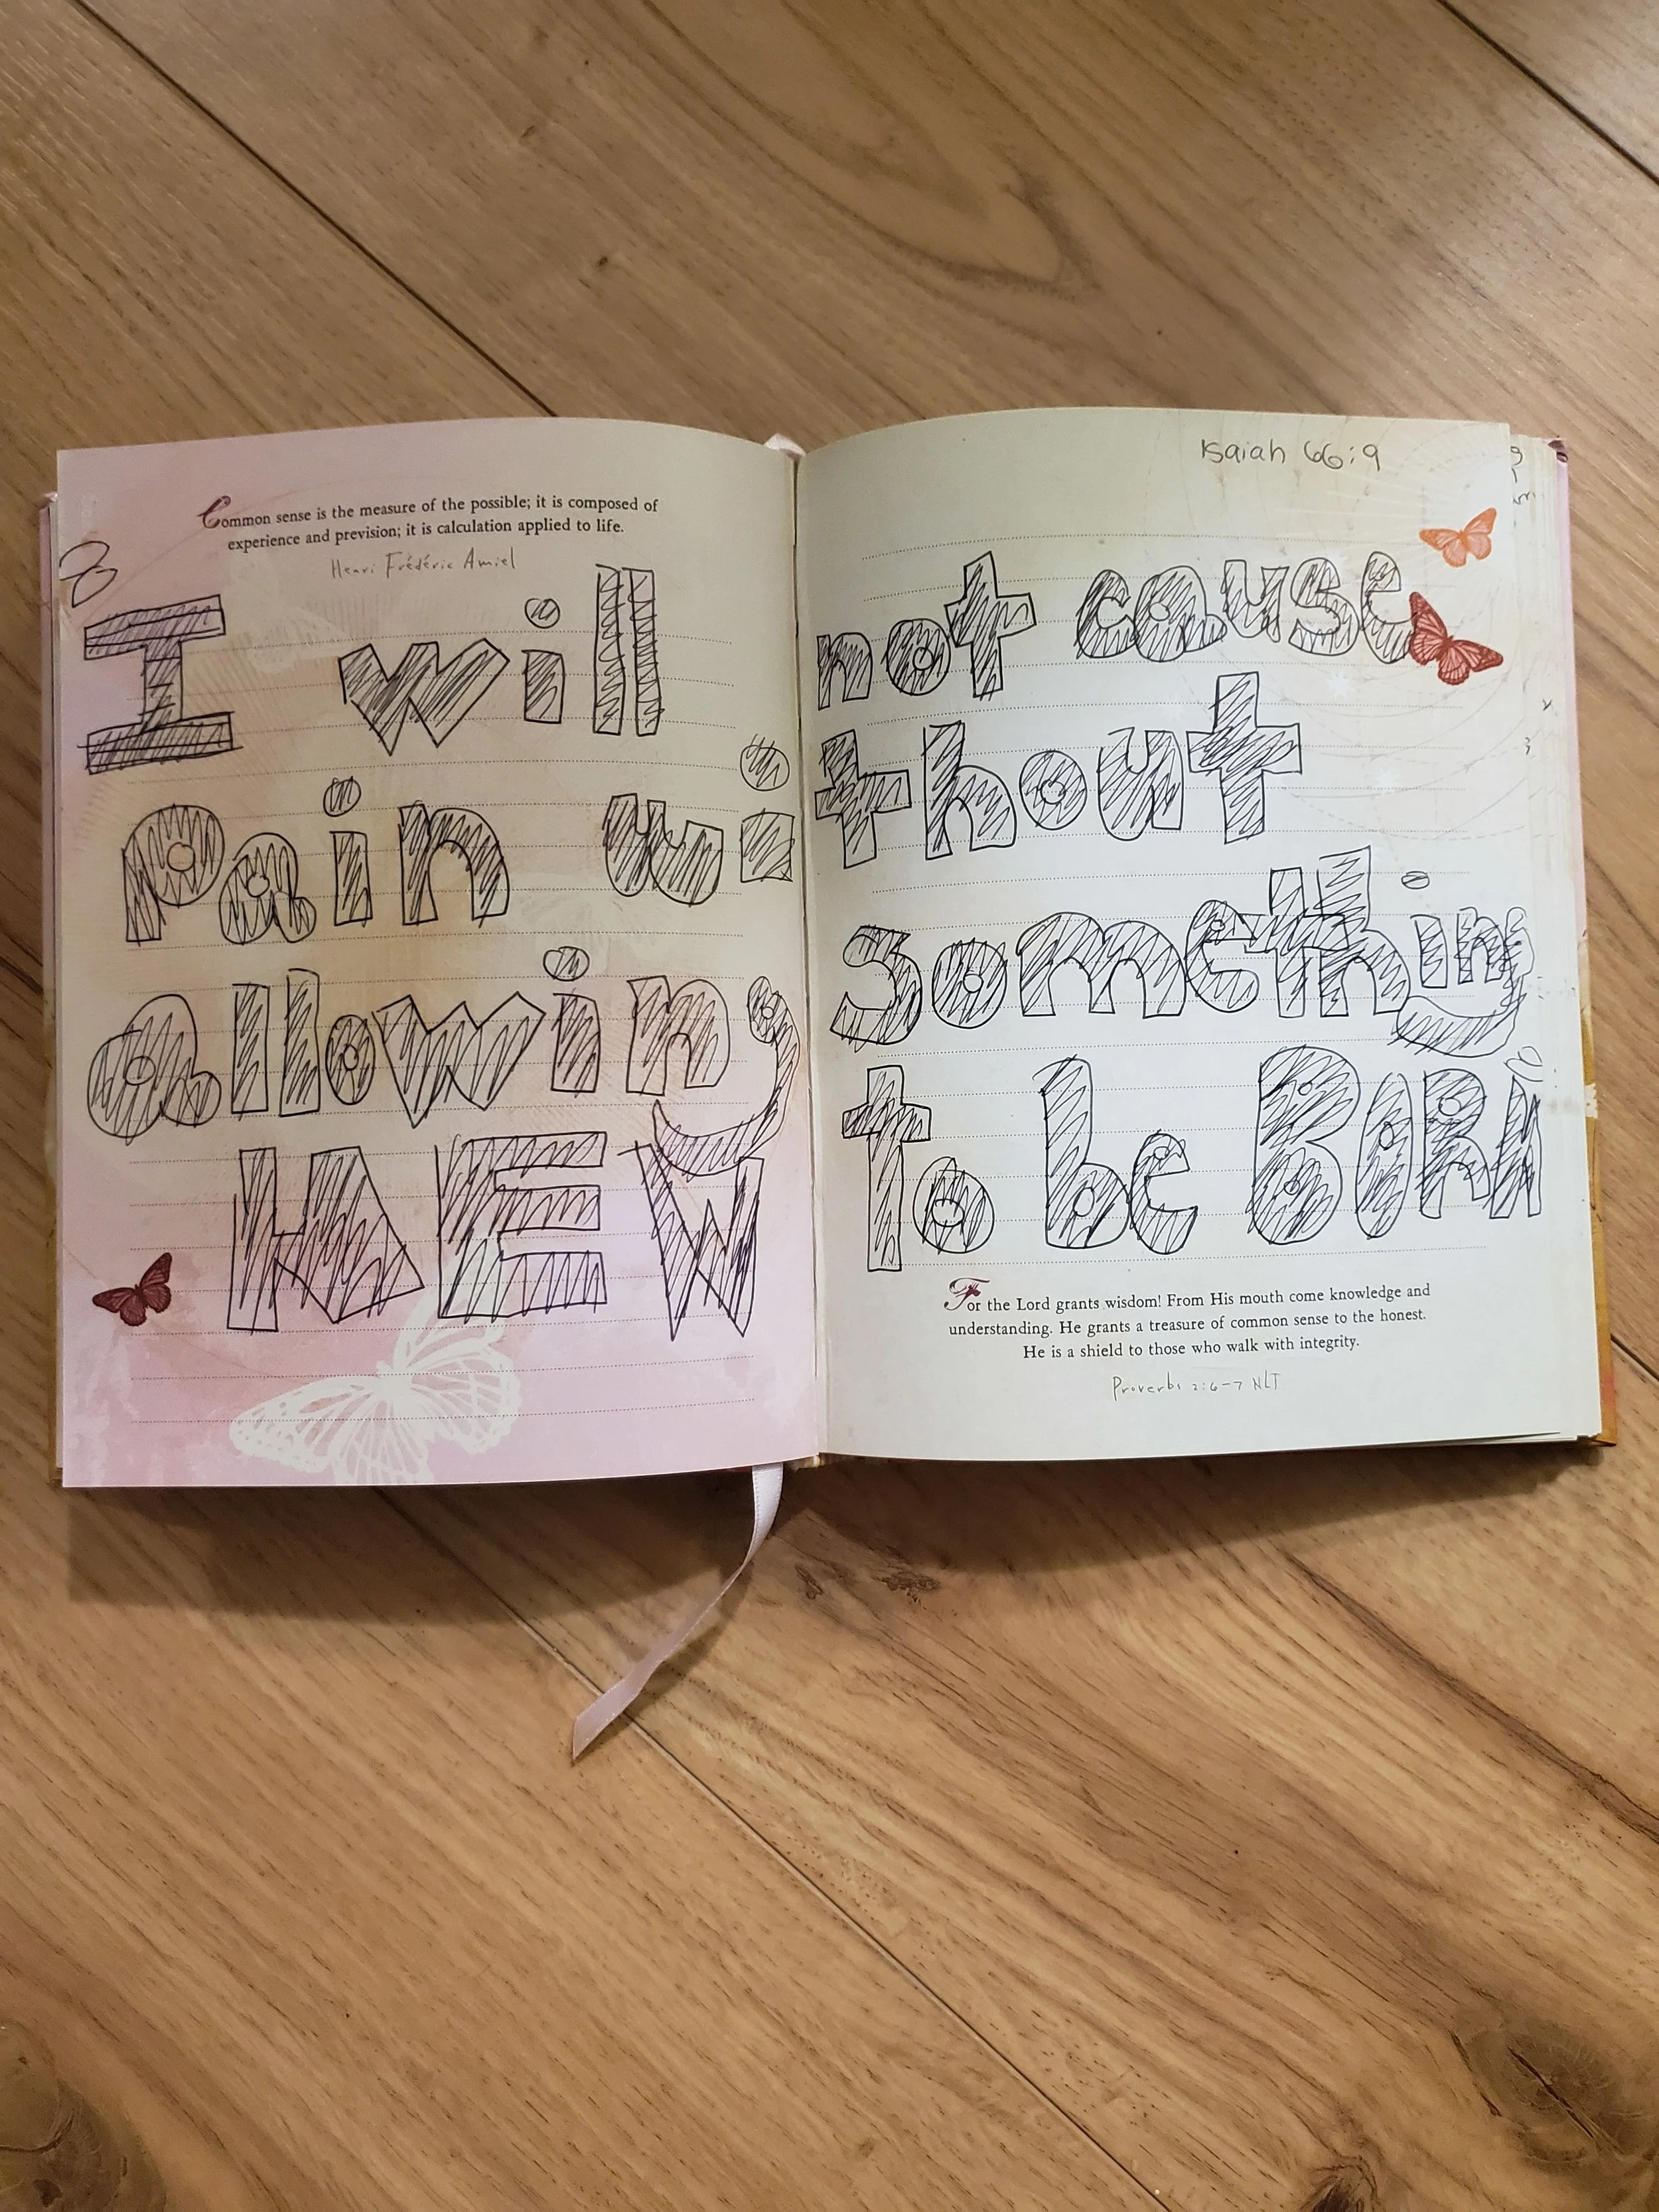 Isaiah 66:9
Common sense is the measure of the possible; it is composed of
experience and prevision; it is calculation applied to life.
Henri Frédéric Amiel
I will not cause
Pain without
allowing something
NEW to be BORN
For the Lord grants wisdom! From His mouth come knowledge and
understanding. He grants a treasure of common sense to the honest.
He is a shield to those who walk with integrity.
Proverbs 2:6–7 NLT